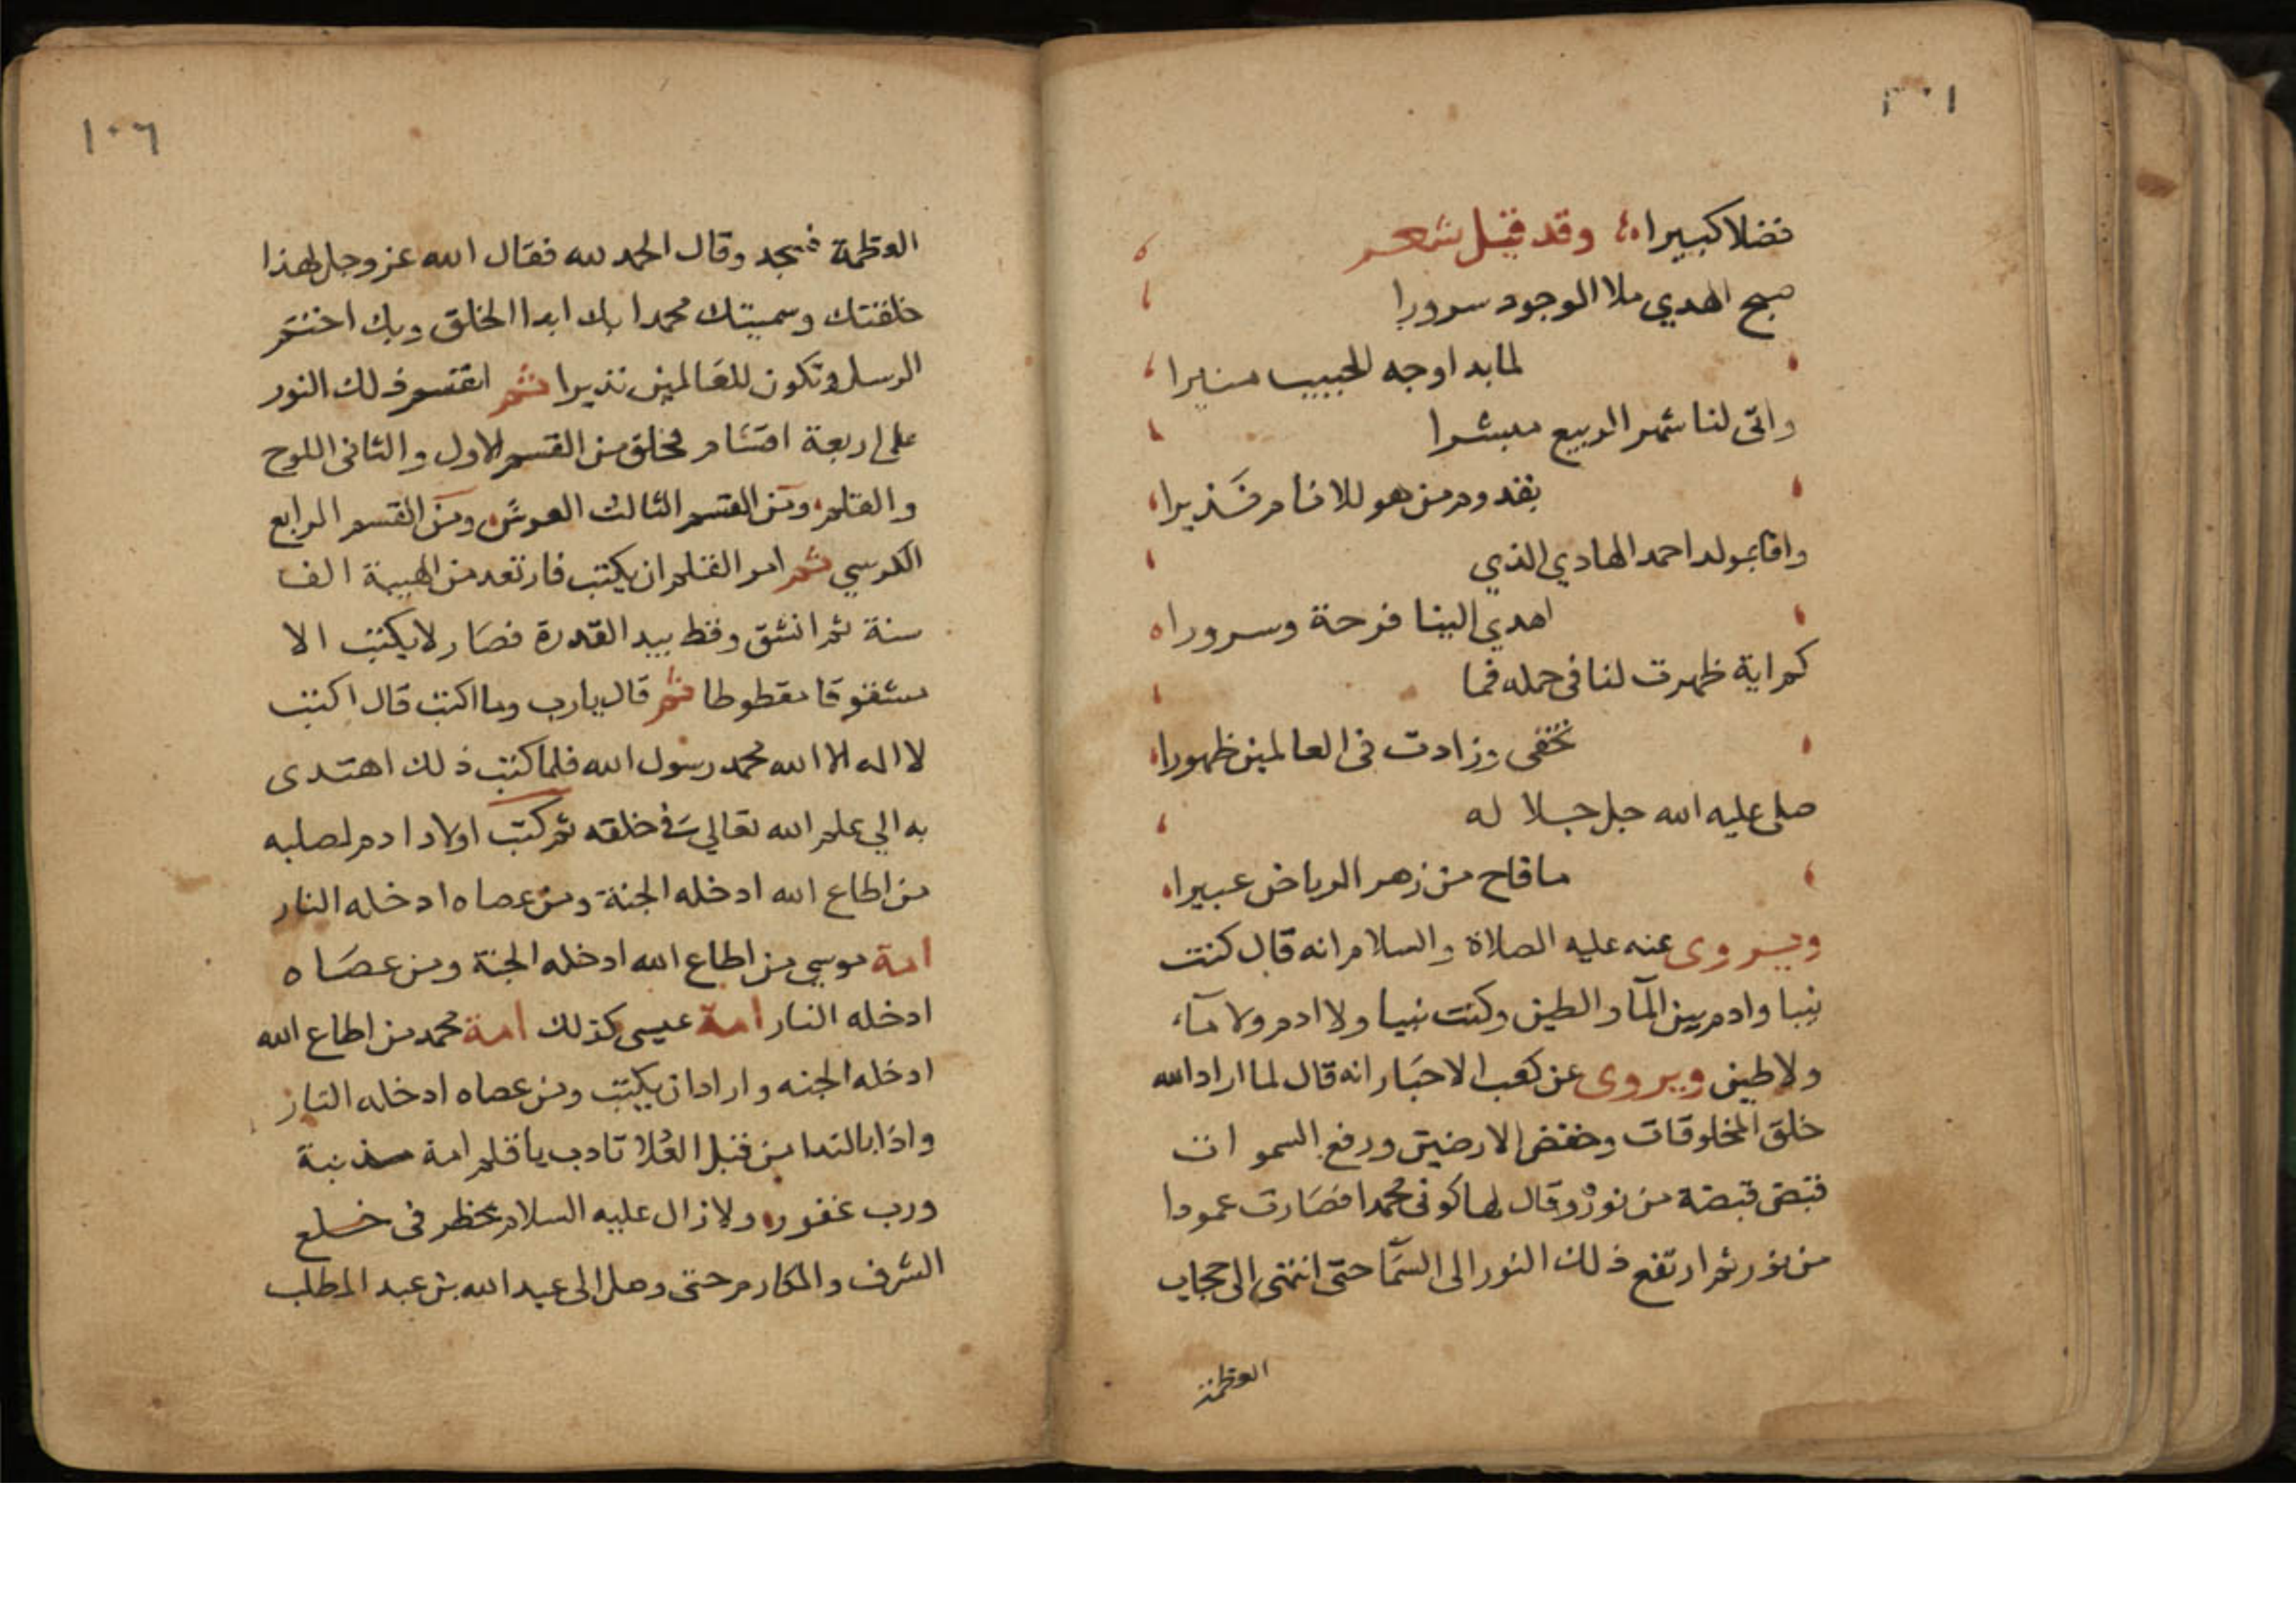 فضلا كبيرا وقد قيل شعر
صبح الهدي ملا الوجود سرورا
لما بدا وجه الحبيب منيرا
واتى لنا شهر الربيع مبشرا
بقدوم من هو للانام نذيرا
وافا بمولد احمد الهادي الذي
اهدي الينا فرحة وسرورا
كم اية ظهرت لنا في حمله فما
تخفى وزادت في العالمين ظهورا
صلى عليه الله جل جلا له
ما فاح من زهر الرياض عبيرا
ويروى عنه عليه الصلاة والسلام انه قال كنت
نبيا وادم بين المآ والطين وكنت نبيا ولا ادم ولا مآء
ولا طين ويروى عن كعب الاحبار انه قال لما اراد الله
خلق المخلوقات وخفض الارضين ورفع السموات
قبض قبضة من نوره وقال لها كونى محمدا فصارت عمودا
من نور ثم ارتفع ذلك النور الى السمآ حتى انتهى الى حجاب
العظمة
١٠٦
العظمة فسجد وقال الحمد لله فقال الله عز وجل لهذا
خلقتك وسميتك محمدا بك ابدا الخلق وبك اختم
الرسل وتكون للعالمين نذيرا ثم اقتسم ذلك النور
على اربعة اقسام فخلق من القسم الاول والثانى اللوح
والقلم ومن القسم الثالث العرش ومن القسم الرابع
الكرسي ثم امر القلم ان يكتب فارتعد من الهيبة الف
سنة ثم انشق وقط بيد القدرة فصار لا يكتب الا
مشقوقا مقطوطا ثم قال يارب وما اكتب قال اكتب
لا اله الا الله محمد رسول الله فلما كتب ذلك اهتدى
به الي علم الله تعالي في خلقه ثم كتب اولاد ادم لصلبه
من اطاع الله ادخله الجنة ومن عصاه ادخله النار
امة موسي من اطاع الله ادخله الجنة ومن عصاه
ادخله النار امة عيسى كذلك امة محمد من اطاع الله
ادخله الجنه واراد ان يكتب ومن عصاه ادخله النار
واذا بالندا من قبل العلا تادب يا قلم امة مذنبة
ورب غفور ولا زال عليه السلام يخطر في خلع
الشرف والمكارم حتى وصل الى عبد الله بن عبد المطلب